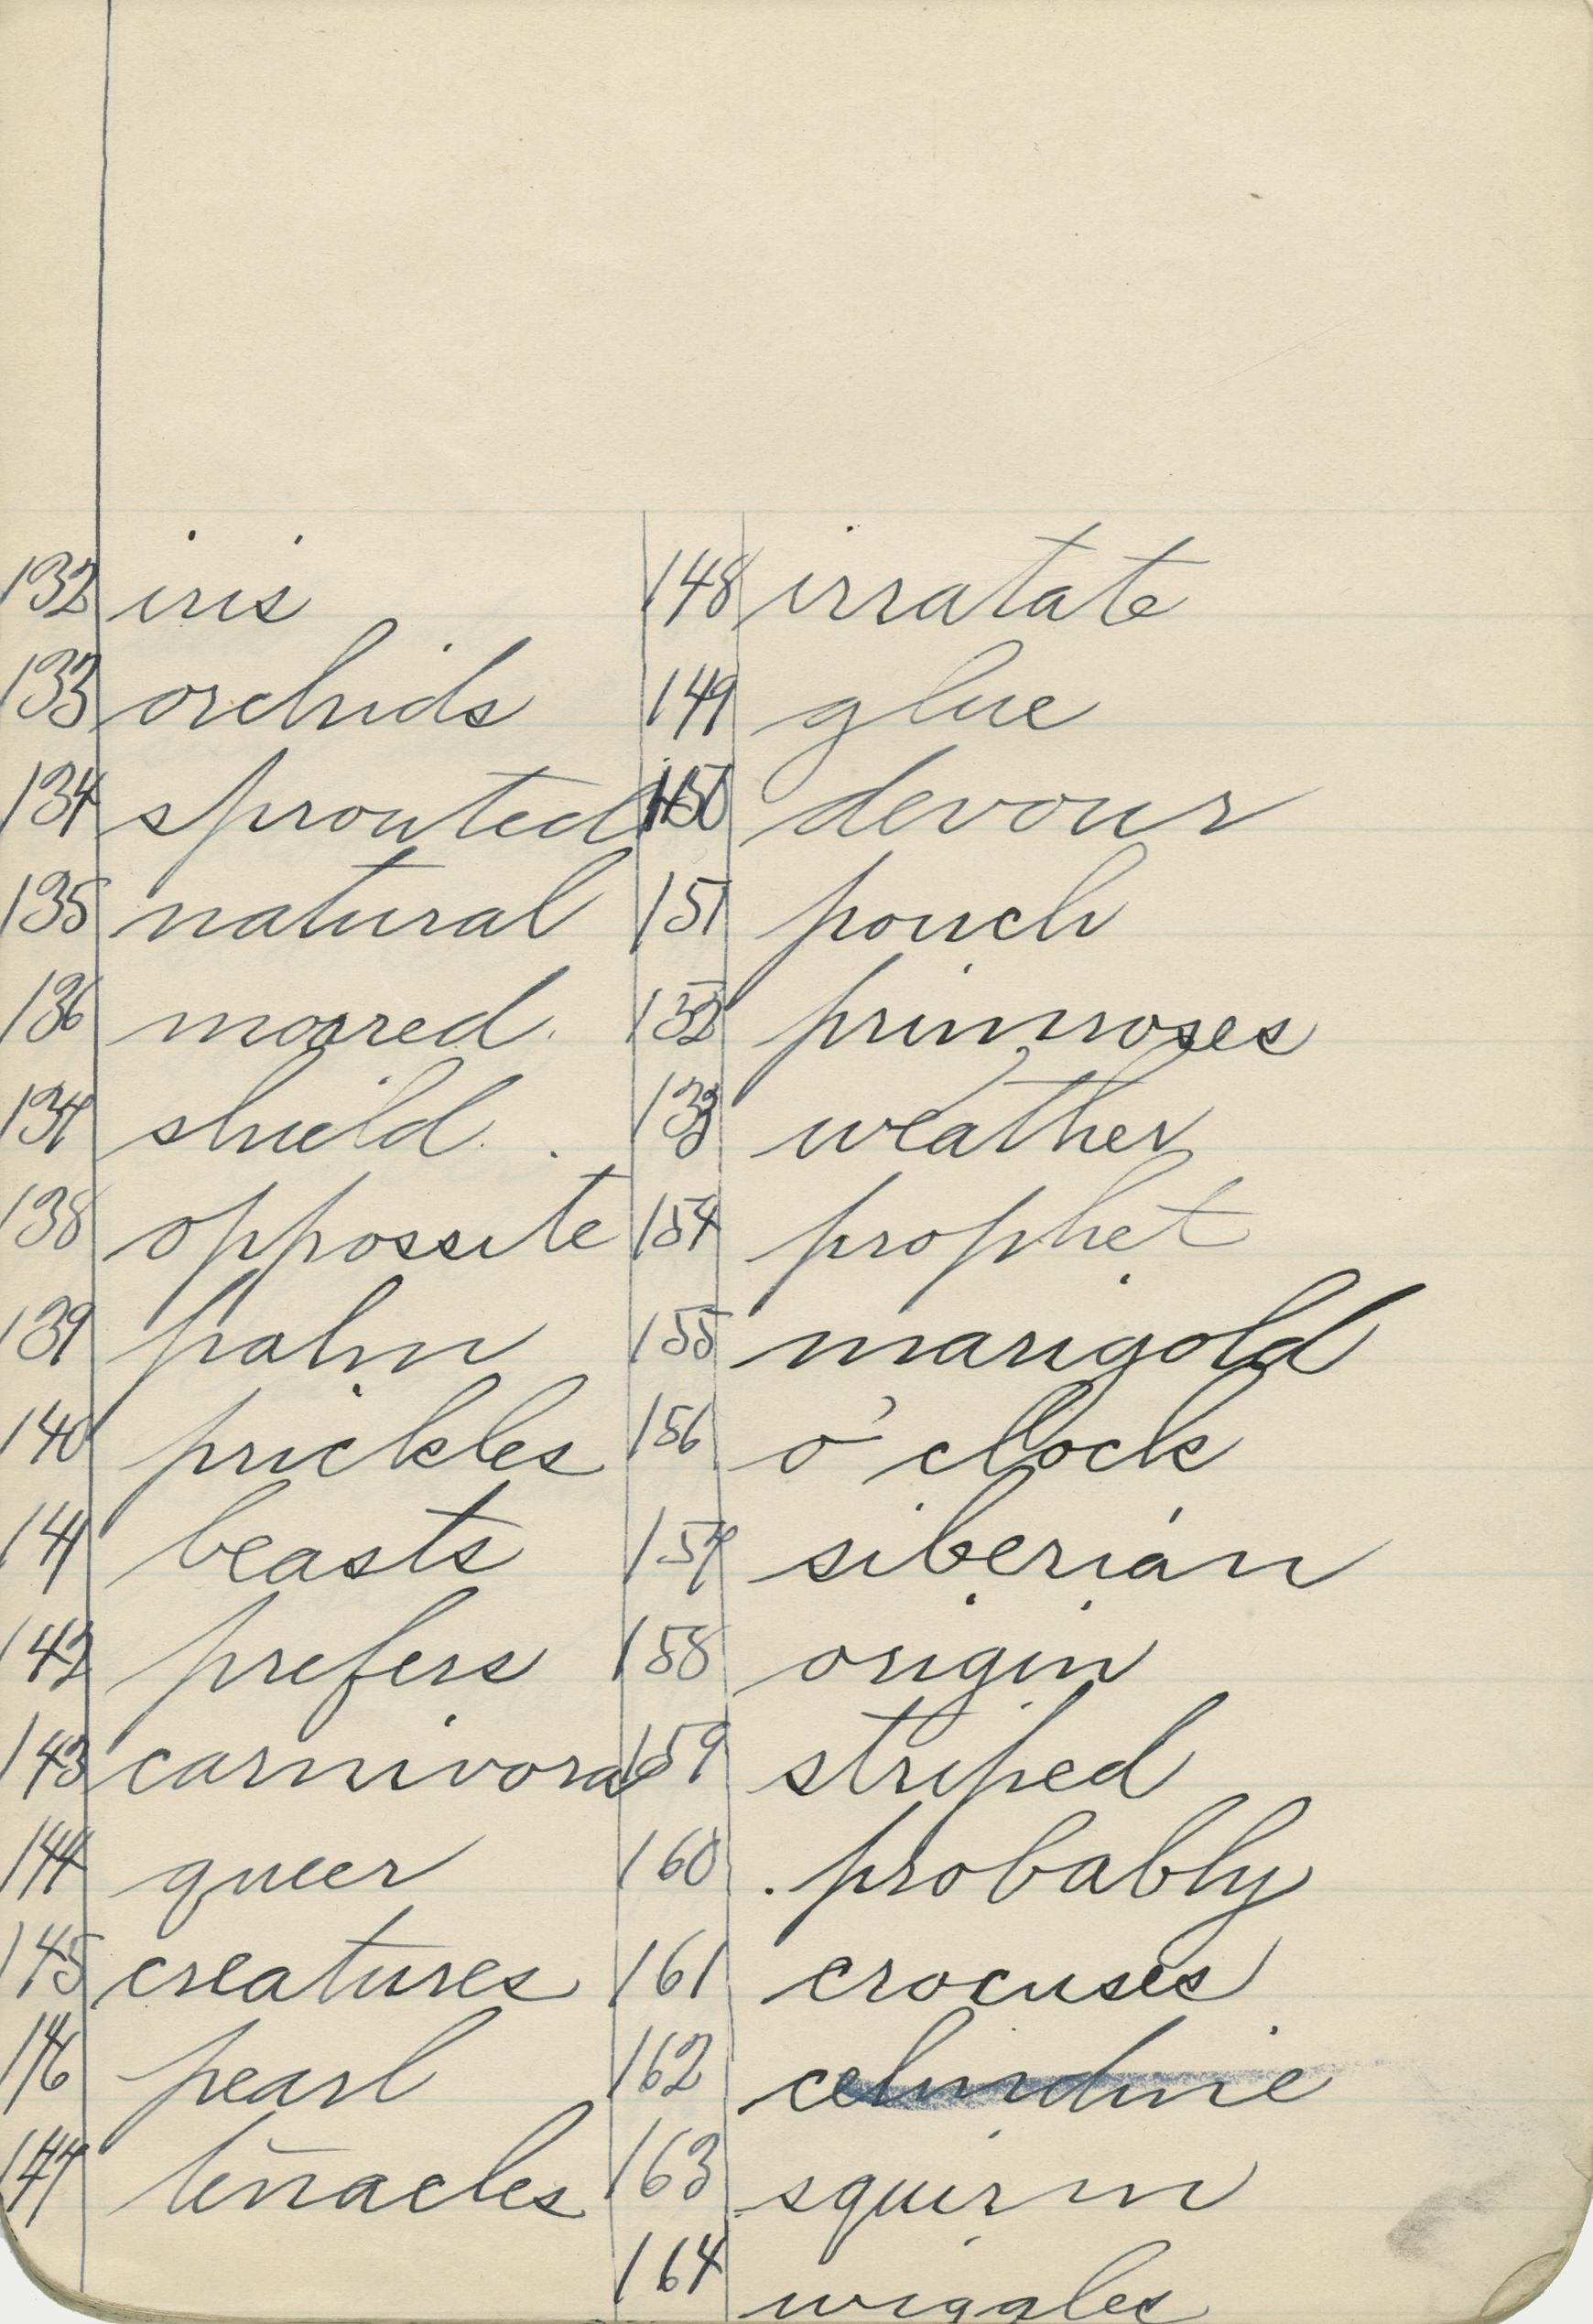 132 iris
133 orchids
134 sprouted
135 natural
136 moored
137 shield
138 oppossite
139 palm
140 prickles
141 beasts
142 prefers
143 carnivora
144 queer
145 creatures
146 pearl
147 tenacles
148 irratate
149 glue
150 devour
151 pouch
152 primroses
153 weather
154 prophet
155 marigold
156 o' clock
157 siberian
158 origin
159 striped
160 probably
161 crocuses
162 celindine
163 squirm
164 wiggles